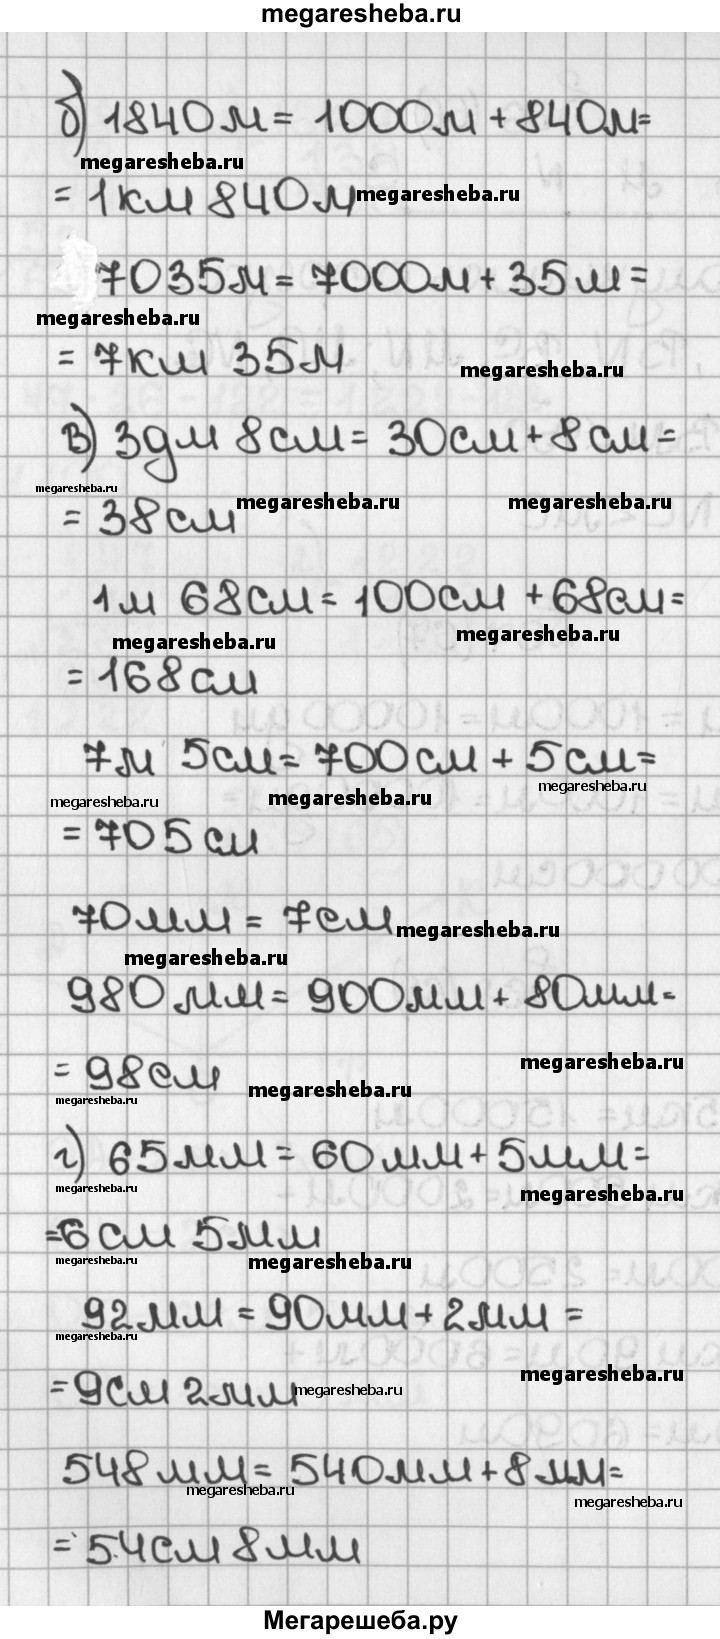 megaresheba.ru
б) 1840м = 1000м + 840м =
megaresheba.ru
= 1км 840м megaresheba.ru
7035м = 7000м + 35м =
megaresheba.ru
= 7км 35м
megaresheba.ru
в) 3дм 8см = 30см + 8см =
megaresheba.ru megaresheba.ru megaresheba.ru
= 38см
1м 68см = 100см + 68см =
megaresheba.ru megaresheba.ru
= 168см
7м 5см = 700см + 5см =
megaresheba.ru megaresheba.ru megaresheba.ru
= 705см
70мм = 7см megaresheba.ru
megaresheba.ru
980мм = 900мм + 80мм =
megaresheba.ru
= 98см megaresheba.ru
megaresheba.ru
г) 65мм = 60мм + 5мм =
megaresheba.ru megaresheba.ru
= 6см 5мм
megaresheba.ru megaresheba.ru
92мм = 90мм + 2мм =
megaresheba.ru
megaresheba.ru
= 9см 2мм megaresheba.ru
548мм = 540мм + 8мм =
megaresheba.ru megaresheba.ru
= 54см 8мм
Мегарешеба.ру